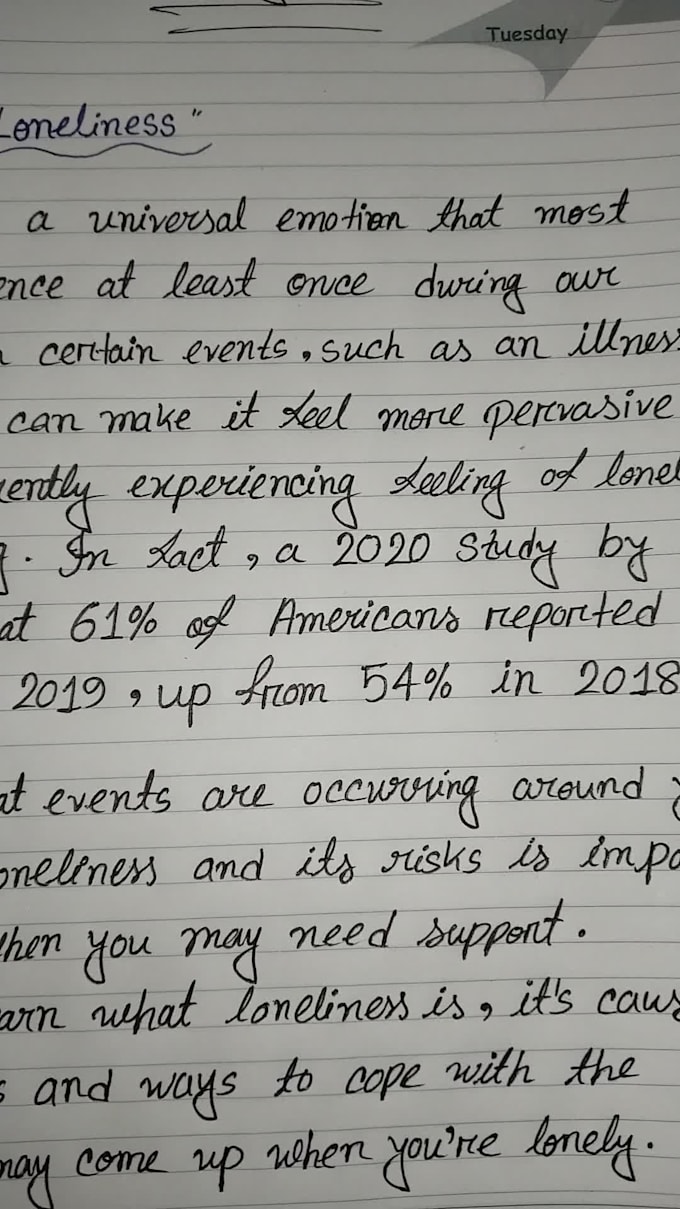 Tuesday
Loneliness"
a universal emotion that most
ence at least once during our
certain events, such as an illness
can make it feel more pervasive
ently experiencing feeling of lonel
. In fact, a 2020 study by
at 61% of Americans reported
2019, up from 54% in 2018
at events are occurring around
oneliness and its risks is impo
hen you may need support.
arn what loneliness is, it's caus
s and ways to cope with the
may come up when you're lonely.